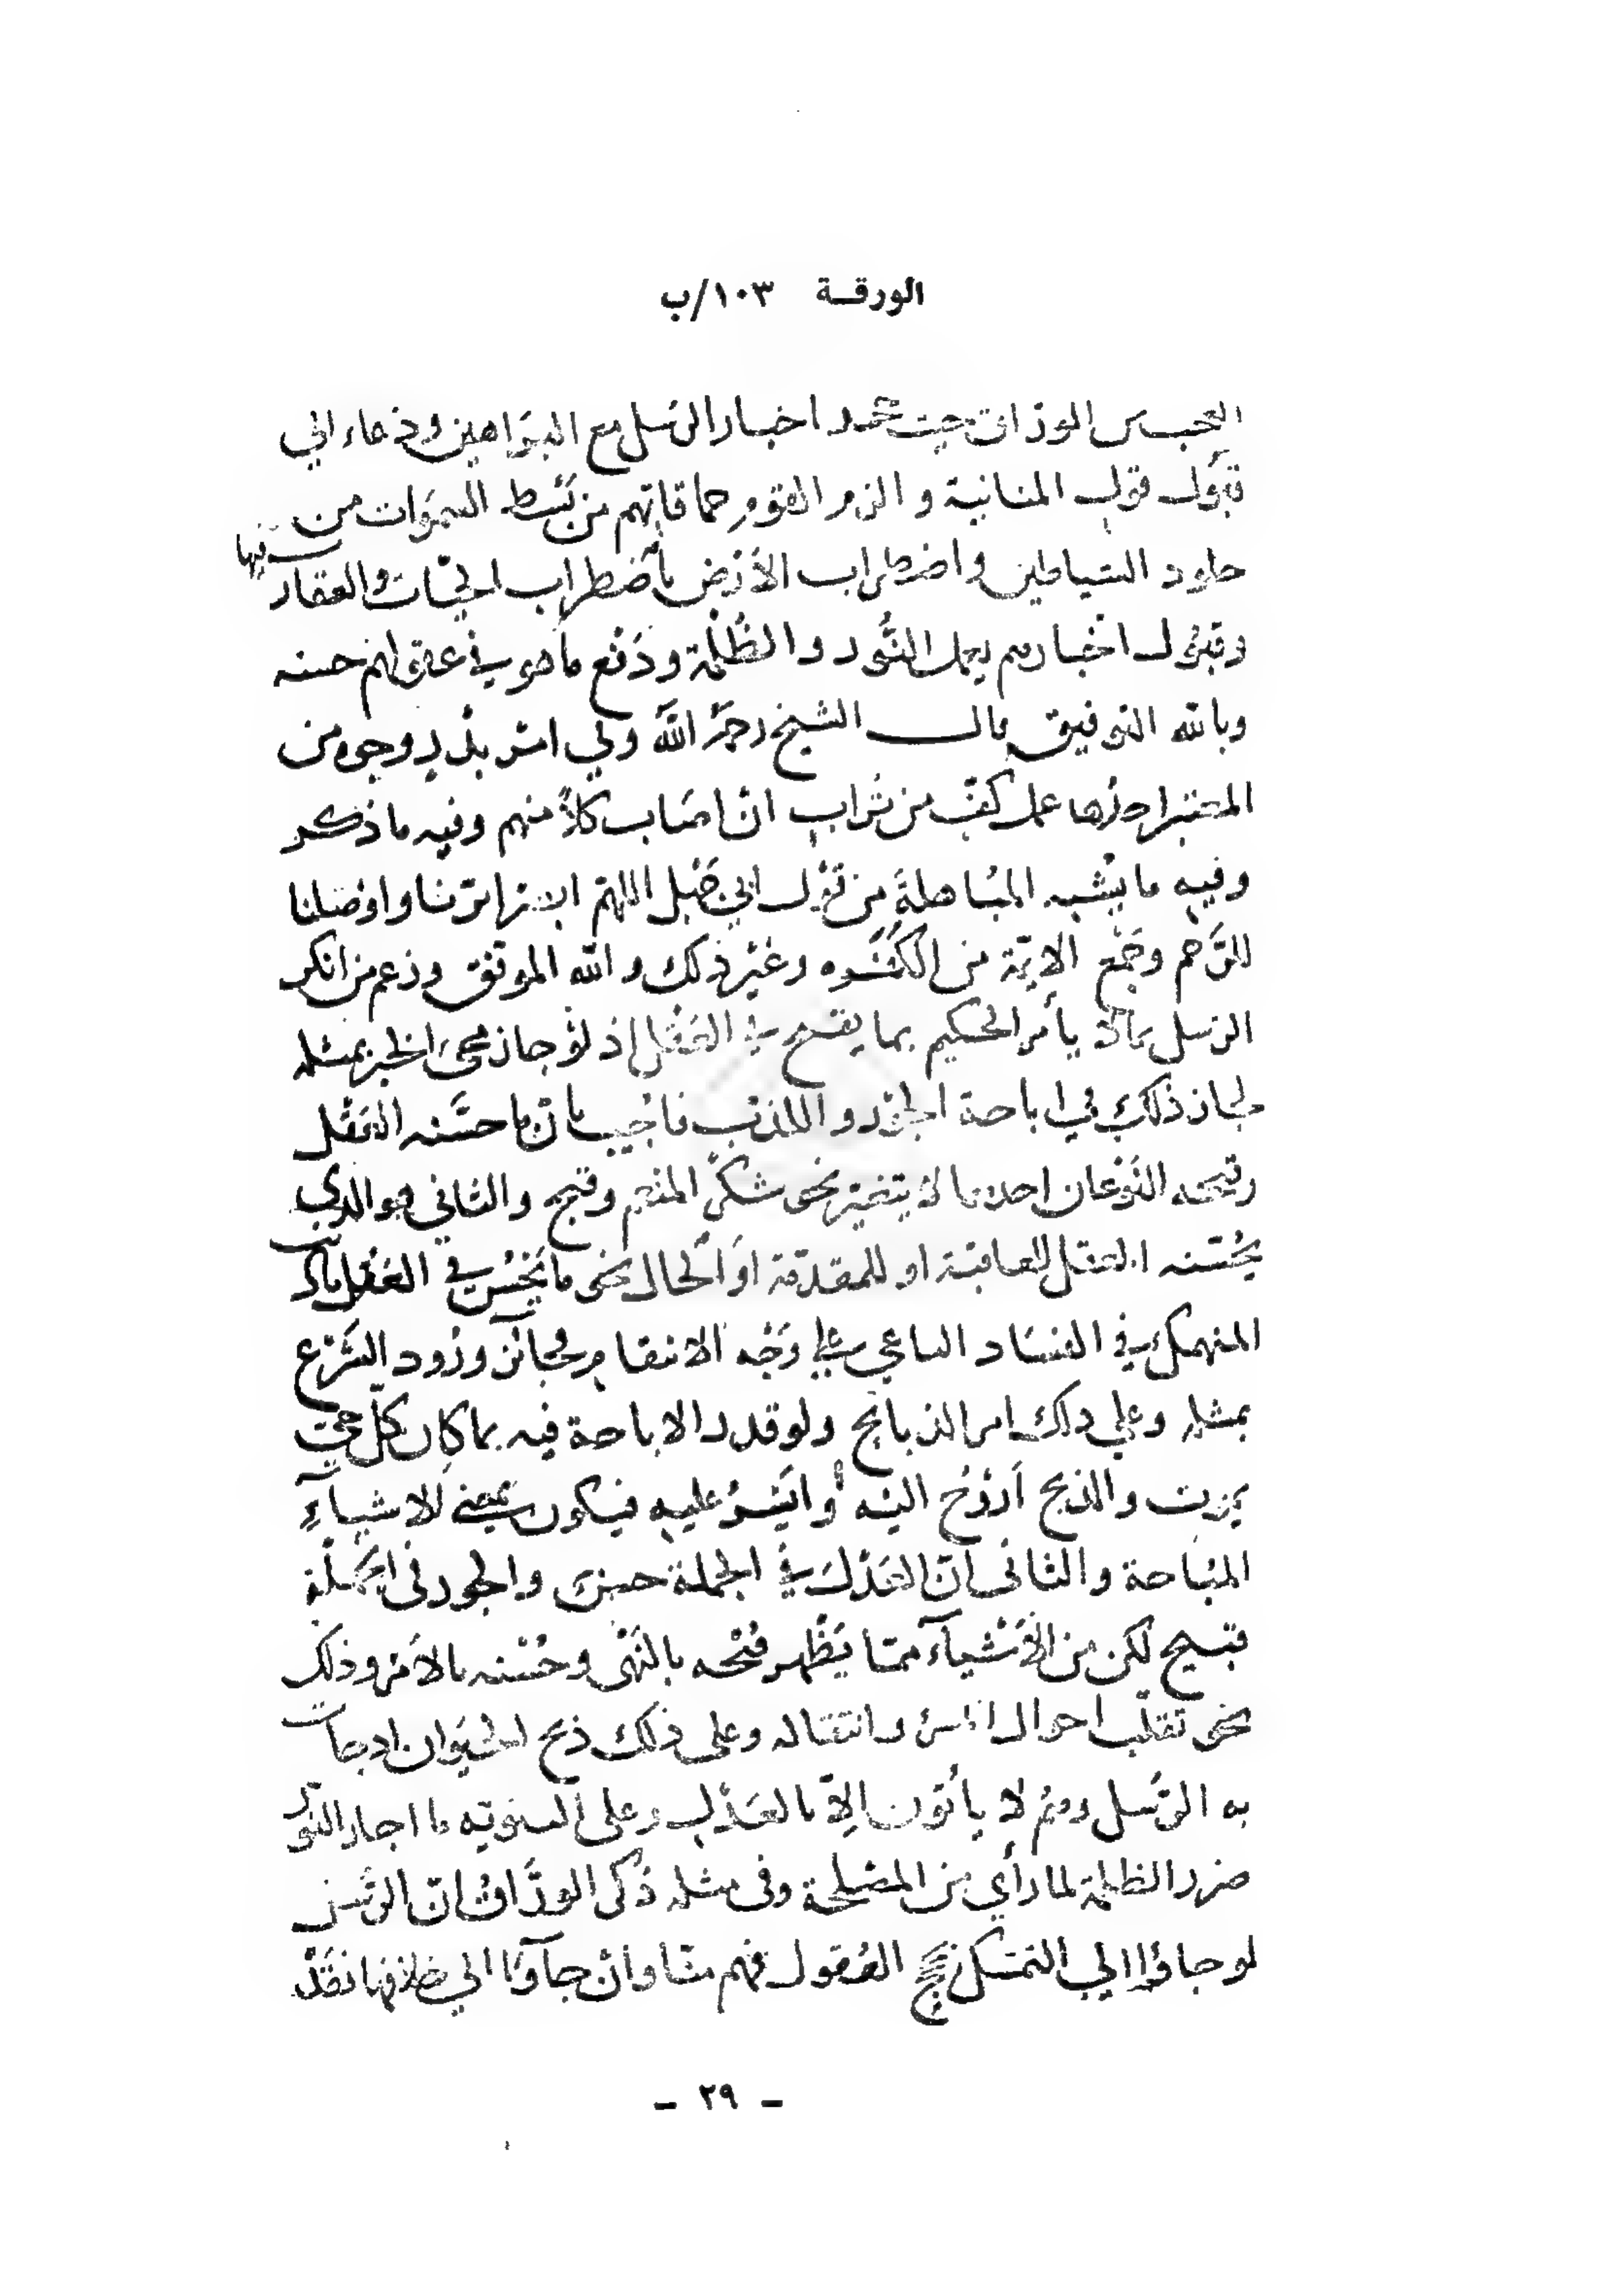 الورقة ١٠٣/ب
العجب من الوراق حيث جحد اخبار الرسل مع البراهين ودعاء الي
قبول قول المنانية والزم القوم حماقاتهم من بسط السموات من
جلود الشياطين واضطراب الأرض باضطراب الحيات والعقارب فيها
وقبول اخبارهم بعمل النُّور والظُّلْمة ودَفْع ما هو في عقولهم حسنه
وبالله التوفيق قال الشيخ رحمه الله ولي امر بدر وجهين
المعتبر احدها عمل كف من تُراب ان اصاب كلاً منهم وفيه ما ذكر
وفيه ما يُشبه المبُاهلة من قول ابي جهل اللهم ابرنا واوصلنا
للرَّحم وجَمْع الاية من الكَفَرة وغير ذلك والله الموفق وزعم من انكر
الرسل بما لا يأمر الحكيم بما يقبح في العَقْل اذ لَوْ جاز مجئ الخبر بمثله
لجاز ذلك في اباحة الجَوْر والكذب فاُجيب بان ما حسَّنه العَقْل
وقبحه النَوْعان احدهما لا يتغير نحو شكر المنعم وقبح والثاني هو الذي
يُحسّنه العقل للعاقبة او للمقدّمة او الحال نحو ما يَحْسُن في العَقْل
المنهمك في الفسَاد الساعي علي وَجْه الانتقام فجائز ورُود الشَرْع
بمثله وعلي ذلك امر الذبائح ولو قدر الاباحة فيه بما كان كل حي
يموت والذبح اَرْوَحُ اليْه أو ايَسرُ عليه فيكون بمعنى للاشياءِ
المبُاحة والثانى ان العَدْل في الجملة حسن والجور فى الجملة
قبيح لكن من الأشْياء ممّا يَظْهر قُبْحه بالنَهْى وحُسْنه بالامْر وذلك
نحو تقلّب احوال وانتقاله وعلى ذلك ذبح الحيَوان اذ جاءت
به الرُسل وهم لا يأتون اِلاّ بالعَدْل وعلى الثنويه ما اجاز النُور
ضرر الظلمة لما رأي من المصْلحة وفى مثله ذكر الورَّاق ان الرُسل
لو جاؤا الي التمسّك بحجج العُقول فهم منّا وانْ جاؤا الي خلافها فقد
ـ ٢٩ ـ